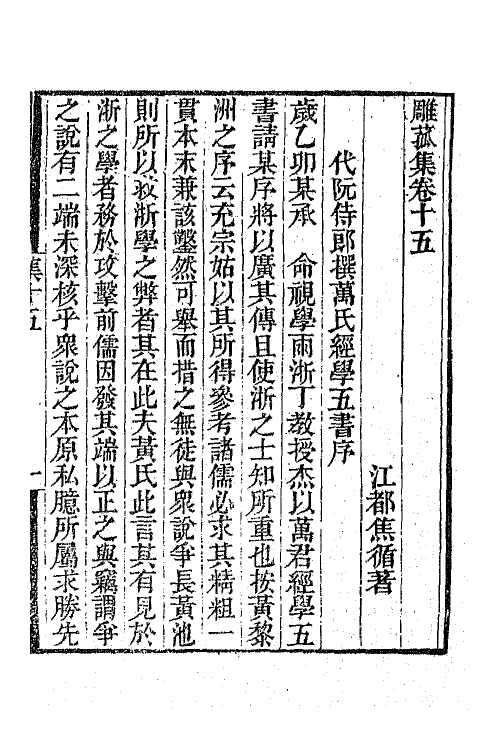 雕菰集卷十五
江都焦循著
代阮侍郎撰萬氏經學五書序
歲乙卯某承 命視學兩浙丁教授杰以萬君經學五
書請某序將以廣其傳且使浙之士知所重也按黃黎
洲之序云充宗姑以其所得參考諸儒必求其精粗一
貫本末兼該鑿然可舉而措之無徒與衆說爭長黃池
則所以救浙學之弊者其在此夫黃氏此言其有見於
浙之學者務於攻擊前儒因發其端以正之與竊謂爭
之說有二端未深核乎衆說之本原私臆所屬求勝先
集十五
一